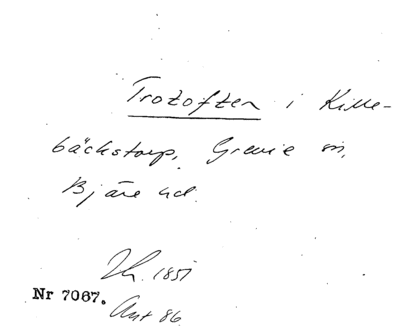 Trotoften i Kille-
bäckstorp, Grevie sn,
Bjäre hd.
1851
Nr 7067.
Ant 86